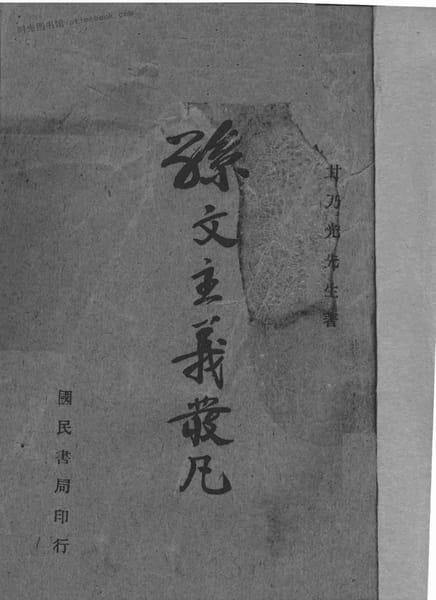 时光图书馆
甘乃光先生著
孫文主義發凡
國民書局印行